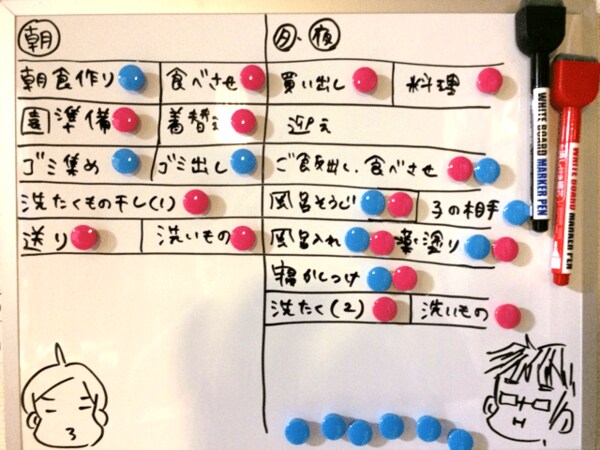 朝
朝食作り 食べさせ
園準備 着替え
ゴミ集め ゴミ出し
洗たくもの干し(1)
送り 洗いもの
夕・夜
買い出し 料理
迎え
ご飯出し、食べさせ
風呂そうじ 子の相手
風呂入れ 薬塗り
寝かしつけ
洗たく(2) 洗いもの
WHITE BOARD MARKER PEN
WHITE BOARD MARKER PEN